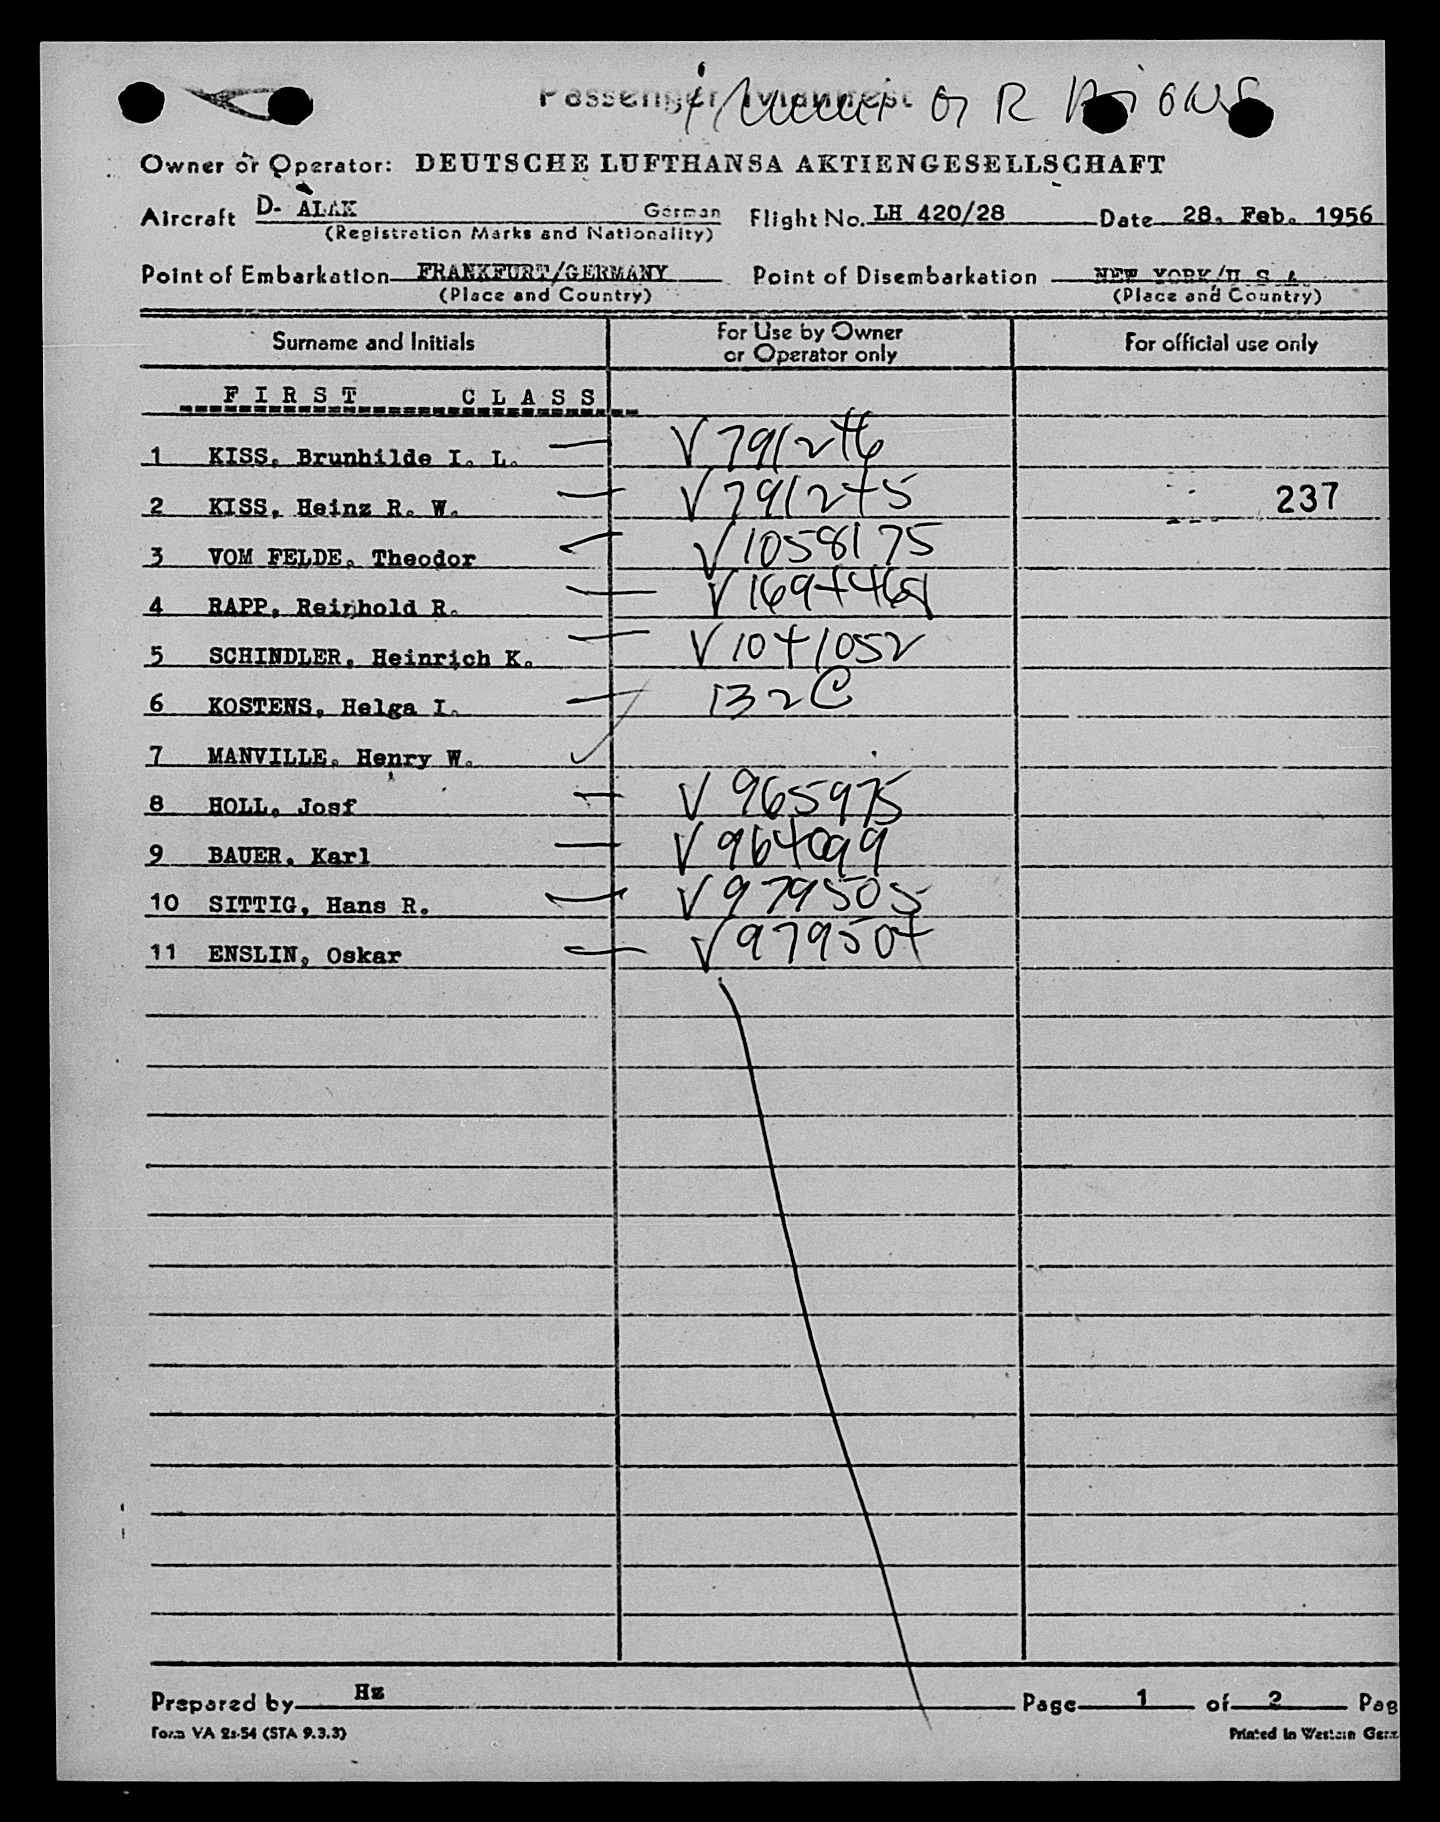 Passenger Manifest
Owner or Operator: DEUTSCHE LUFTHANSA AKTIENGESELLSCHAFT
Aircraft D- ALAK German Flight No. LH 420/28 Date 28. Feb. 1956
(Registration Marks and Nationality)
Point of Embarkation FRANKFURT/GERMANY Point of Disembarkation NEW YORK/U.S.A.
(Place and Country) (Place and Country)
Surname and Initials For Use by Owner or Operator only For official use only
FIRST CLASS
1 KISS, Brunhilde I. L. V 791246
2 KISS, Heinz R. W. V 791245 237
3 VOM FELDE, Theodor V 1058175
4 RAPP, Reinhold R.
5 SCHINDLER, Heinrich K. V 1041052
6 KOSTENS, Helga I. 132C
7 MANVILLE, Henry W.
8 HOLL, Josf V 965975
9 BAUER, Karl V 964099
10 SITTIG, Hans R. V 979505
11 ENSLIN, Oskar V 979504
Prepared by Hz Page 1 of 2 Pag
Form VA 2s-54 (STA 9.3.3) Printed in Western Germ